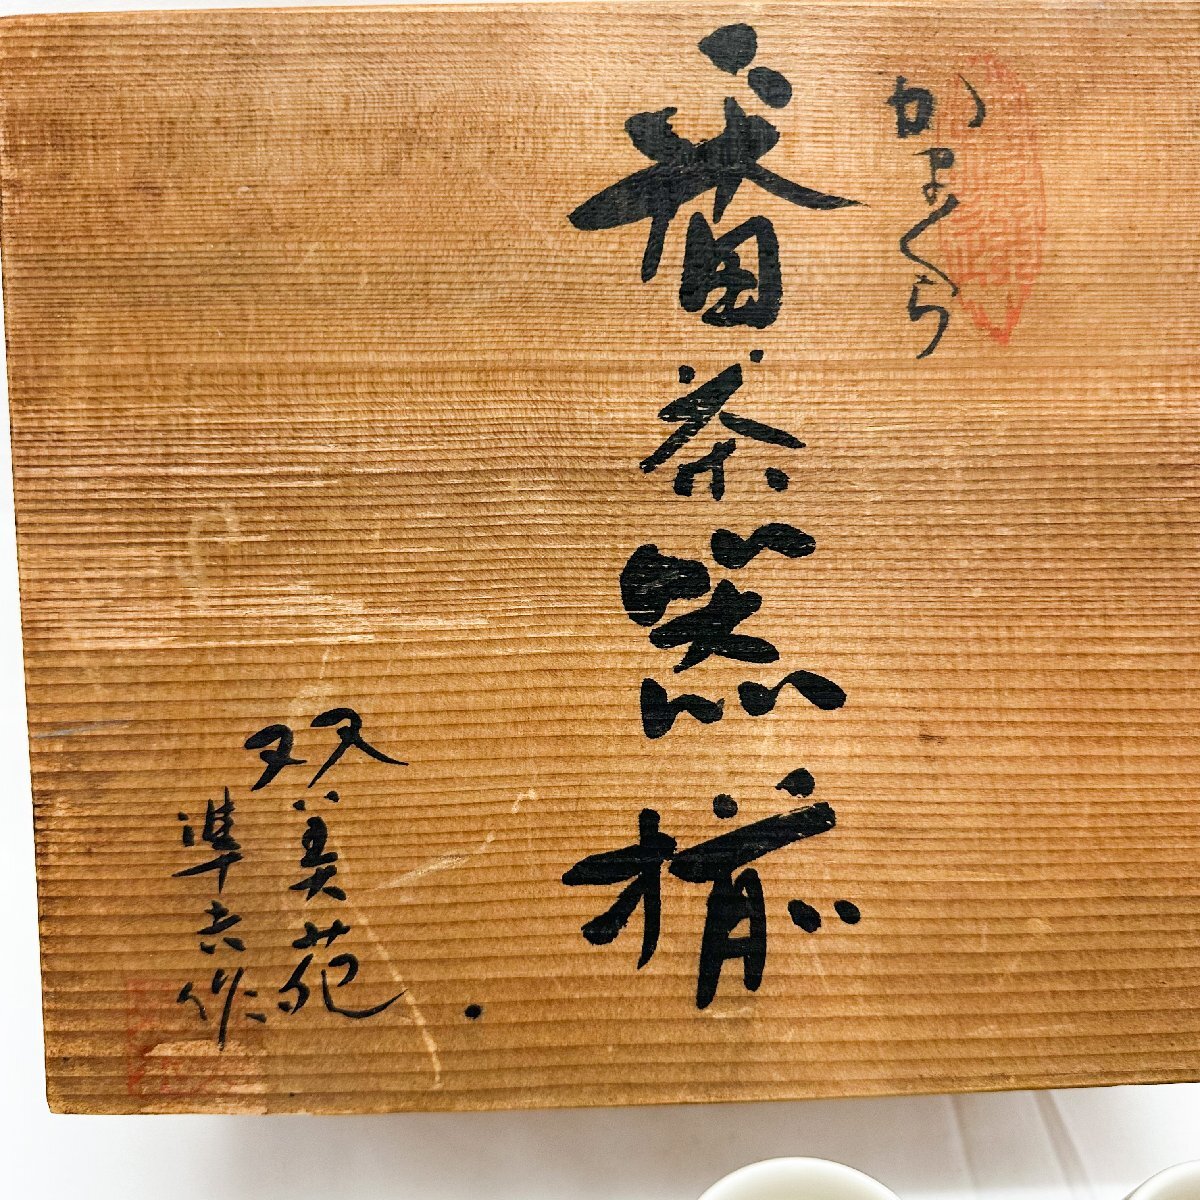 かまくら
番茶器揃
双美苑
準吉作